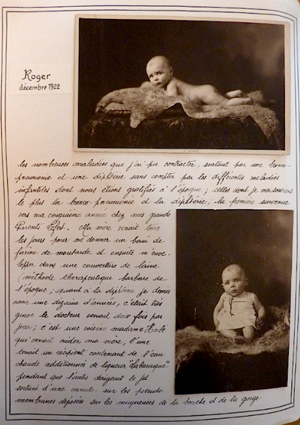 Roger
décembre 1922
les nombreuses maladies que j'ai pu contracter, surtout par une broncho-
pneumonie et une diphtérie sans compter par les différentes maladies
infantiles dont nous étions gratifiés à l'époque ; celles dont je me souviens
le plus la bronco-pneumonie et la diphtérie, la première survenue
vers ma cinquième année chez mes grands
Parents ; Ma mère venait tous
les jours pour me donner un bain de
farine de moutarde et ensuite m'enve-
lopper dans une couverture de laine
méthode thérapeutique barbare de
l'époque ; quant à la diphtérie je devais
avoir une dizaine d'années, c'était très
grave le docteur venait deux fois par
jour ; c'est une voisine madame
qui venait aider ma mère, l'une
tenait un récipient contenant de l'eau
chaude additionnée de liqueur
pendant que l'autre dirigeait le jet
sortant d'une canule sur les pseudo-
membranes déposées sur les muqueuses de la bouche et de la gorge.